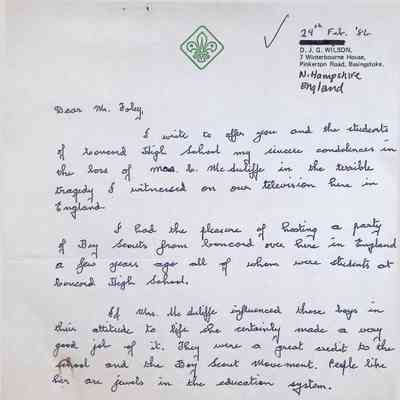 24th Feb. '86
D. J. G. WILSON,
7 Winterbourne House,
Pinkerton Road, Basingstoke.
N. Hampshire
England
Dear Mr. Foley,
I write to offer you and the students
of Concord High School my sincere condolences in
the loss of Mrs. C. Mc Auliffe in the terrible
tragedy I witnessed on our television here in
England.
I had the pleasure of hosting a party
of Boy Scouts from Concord over here in England
a few years ago all of whom were students at
Concord High School.
If Mrs. Mc Auliffe influenced those boys in
their attitude to life she certainly made a very
good job of it. They were a great credit to the
school and the Boy Scout Movement. People like
her are jewels in the education system.